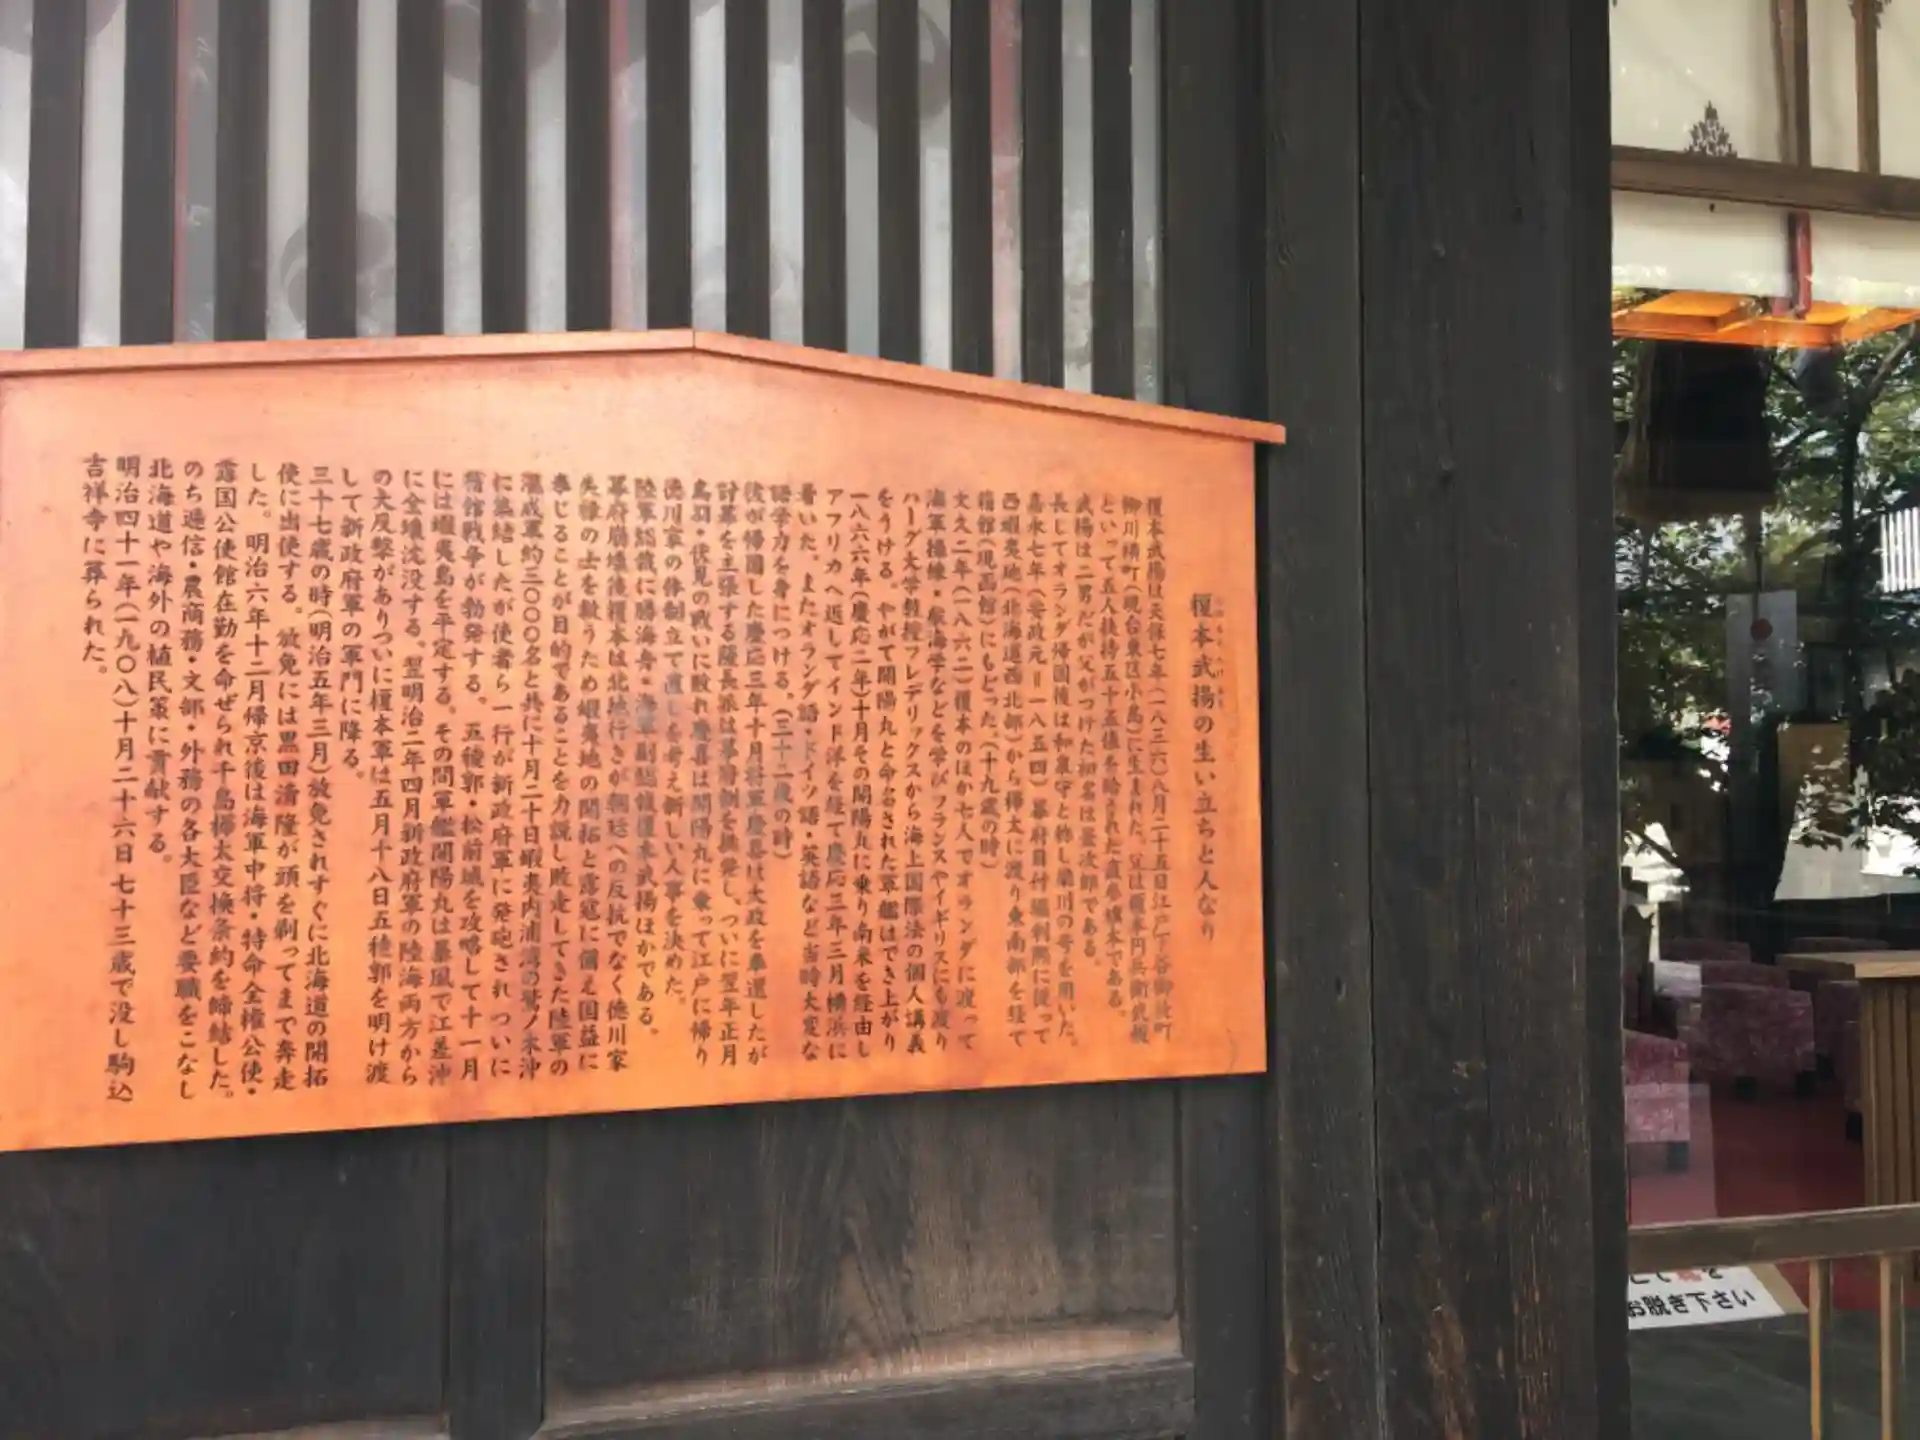 榎本武揚の生い立ちと人なり
榎本武揚は天保七年(一八三六)八月二十五日江戸下谷御徒町
柳川横町(現台東区小島)に生まれた。父は榎本円兵衛武規
といって五人扶持五十五俵を給された直参旗本である。
武揚は二男だが父がつけた初名は釜次郎である。
長じてオランダ帰国後は和泉守と称し梁川の号を用いた。
嘉永七年(安政元=一八五四)幕府目付堀利熙に従って
西蝦夷地(北海道西北部)から樺太に渡り東南部を経て
箱館(現函館)にもどった。(十九歳の時)
文久二年(一八六二)榎本のほか七人でオランダに渡って
海軍操練・航海学などを学びフランスやイギリスにも渡り
ハーグ大学教授フレデリックスから海上国際法の個人講義
をうける。やがて開陽丸と命名された軍艦はでき上がり
一八六六年(慶応二年)十月その開陽丸に乗り南米を経由し
アフリカへ返してインド洋を経て慶応三年三月横浜に
着いた。またオランダ語・ドイツ語・英語など当時大変な
語学力を身につける。(三十二歳の時)
彼が帰国した慶応三年十月将軍慶喜は大政を奉還したが
討幕を主張する薩長派は幕府側を挑発し、ついに翌年正月
鳥羽・伏見の戦いに敗れ慶喜は開陽丸に乗って江戸に帰り
徳川家の体制立て直しを考え新しい人事を決めた。
陸軍総裁に勝海舟・海軍副総裁榎本武揚ほかである。
幕府崩壊後榎本は北地行きが朝廷への反抗でなく徳川家
失禄の士を救うため蝦夷地の開拓と露寇に備え国益に
奉じることが目的であることを力説し敗走してきた陸軍の
混成軍約三〇〇〇名と共に十月二十日蝦夷内浦湾の鷲ノ木沖
に集結したが使者ら一行が新政府軍に発砲されついに
箱館戦争が勃発する。五稜郭・松前城を攻略して十一月
には蝦夷島を平定する。その間軍艦開陽丸は暴風で江差沖
に全壊沈没する。翌明治二年四月新政府軍の陸海両方から
の大反撃がありついに榎本軍は五月十八日五稜郭を明け渡
して新政府軍の軍門に降る。
三十七歳の時(明治五年三月)放免されすぐに北海道の開拓
使に出使する。放免には黒田清隆が頭を剃ってまで奔走
した。明治六年十二月帰京後は海軍中将・特命全権公使・
露国公使館在勤を命ぜられ千島樺太交換条約を締結した。
のち逓信・農商務・文部・外務の各大臣など要職をこなし
北海道や海外の植民策に貢献する。
明治四十一年(一九〇八)十月二十六日七十三歳で没し駒込
吉祥寺に葬られた。
お脱ぎ下さい